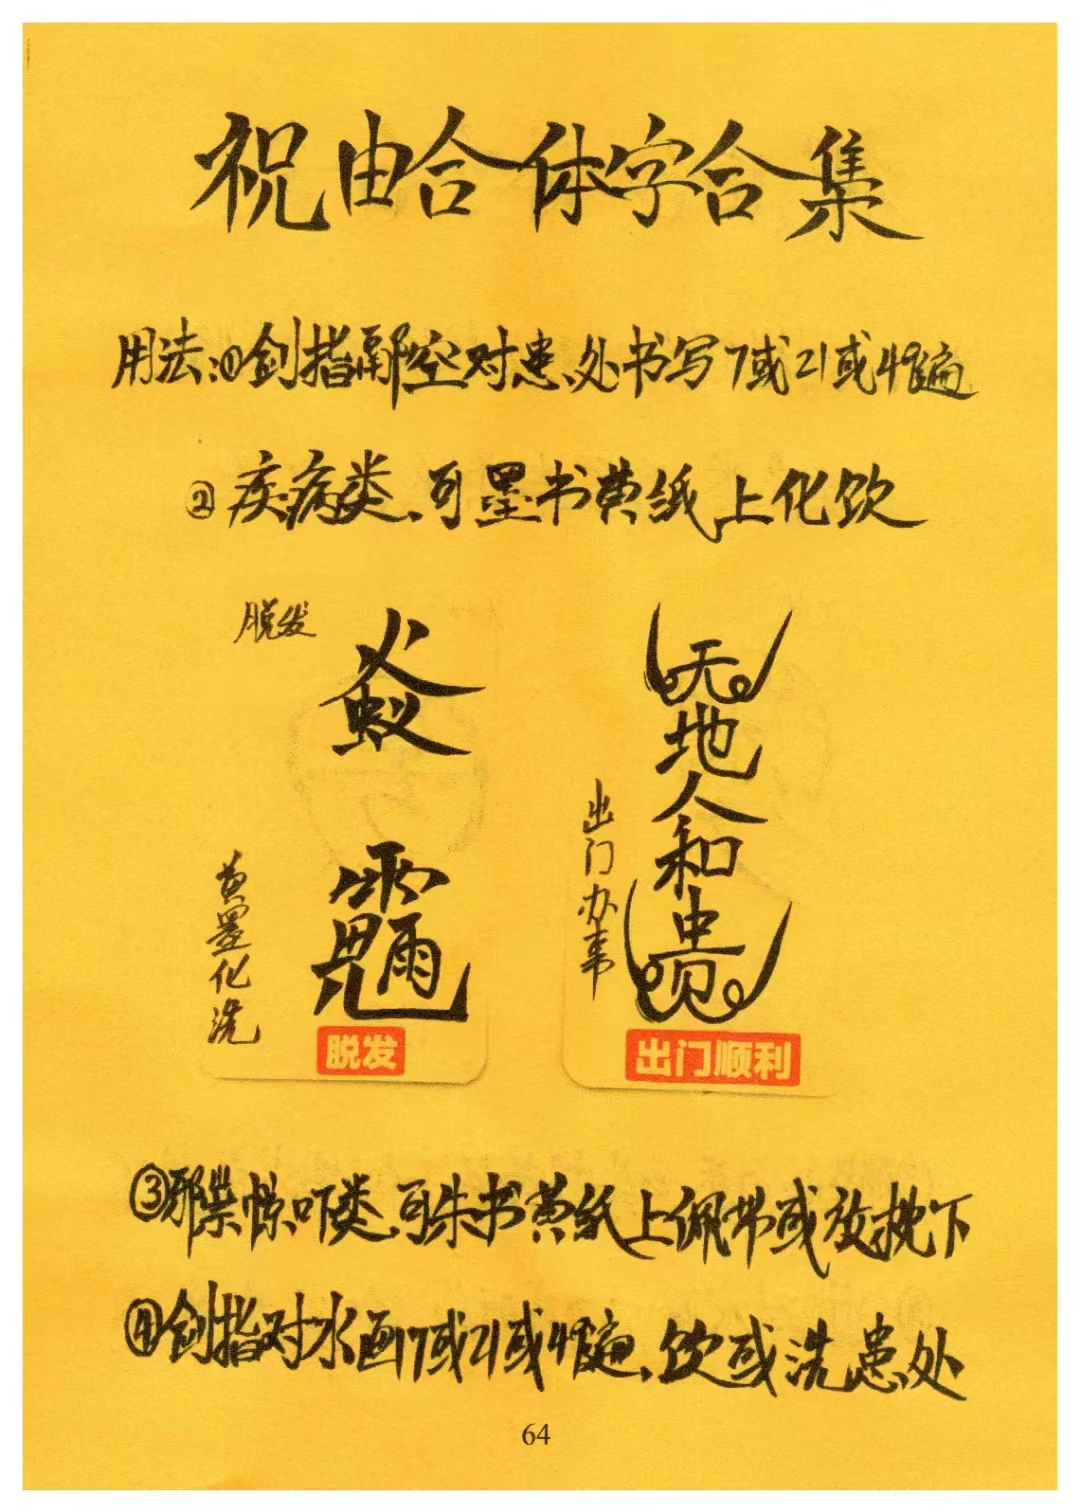 祝由合体字合集
用法:①剑指凌空对患处书写7或21或49遍
②疾病类、可墨书黄纸上化饮
脱发
黄墨化洗
脱发
天地人和贵
出门办事
出门顺利
③邪祟惊吓类、可朱书黄纸上佩带或放枕下
④剑指对水画7或21或49遍、饮或洗患处
64